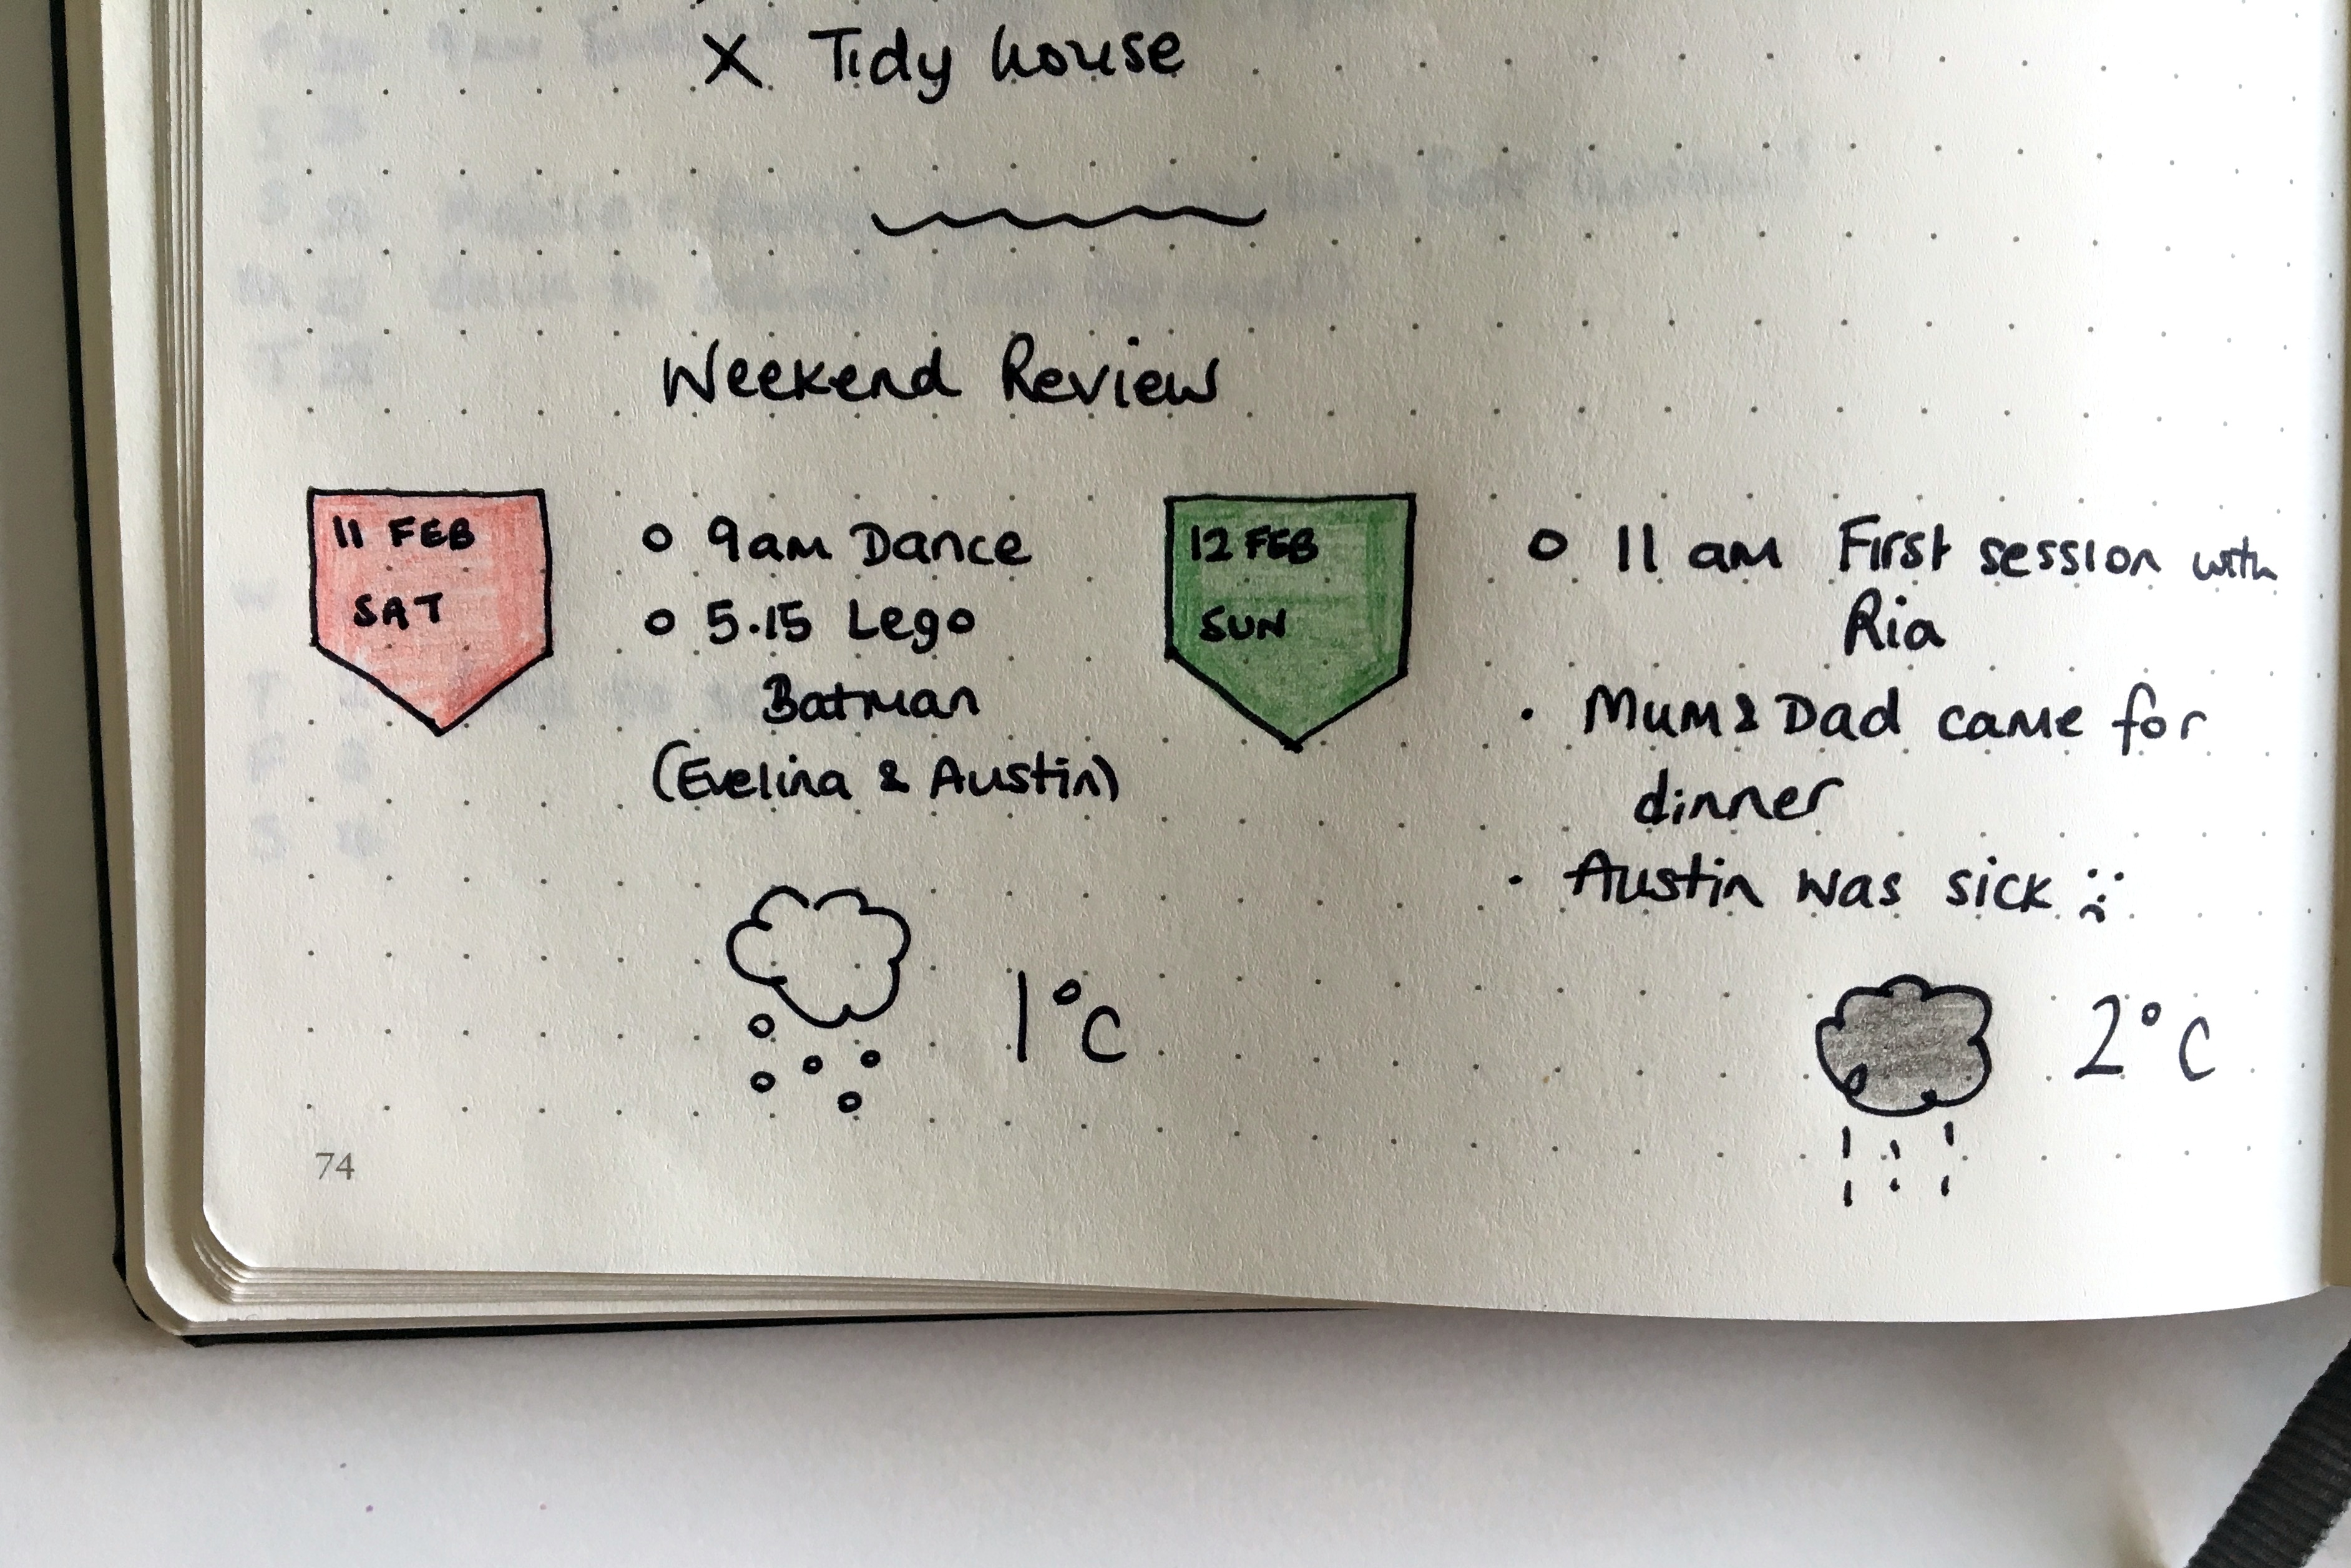 X Tidy house
Weekend Review
11 FEB
SAT
o 9am Dance
o 5.15 Lego
Batman
(Evelina & Austin)
1°C
12 FEB
SUN
o 11 am First session with
Ria
· Mum & Dad came for
dinner
· Austin was sick :(
2°C
74